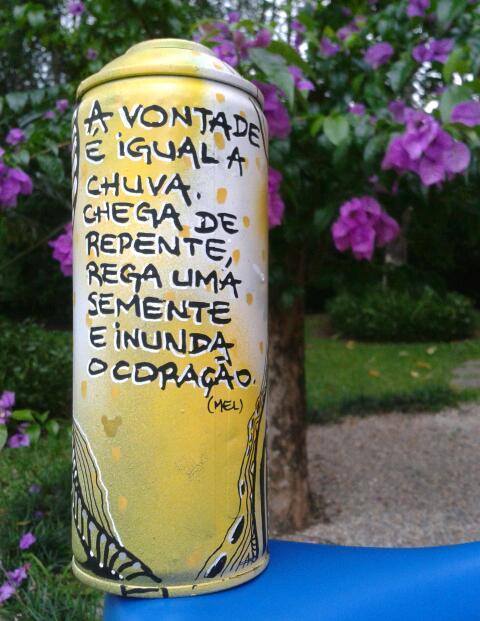 A VONTADE
E IGUAL A
CHUVA.
CHEGA DE
REPENTE,
REGA UMA
SEMENTE
E INUNDA
O CORAÇÃO.
(MEL)